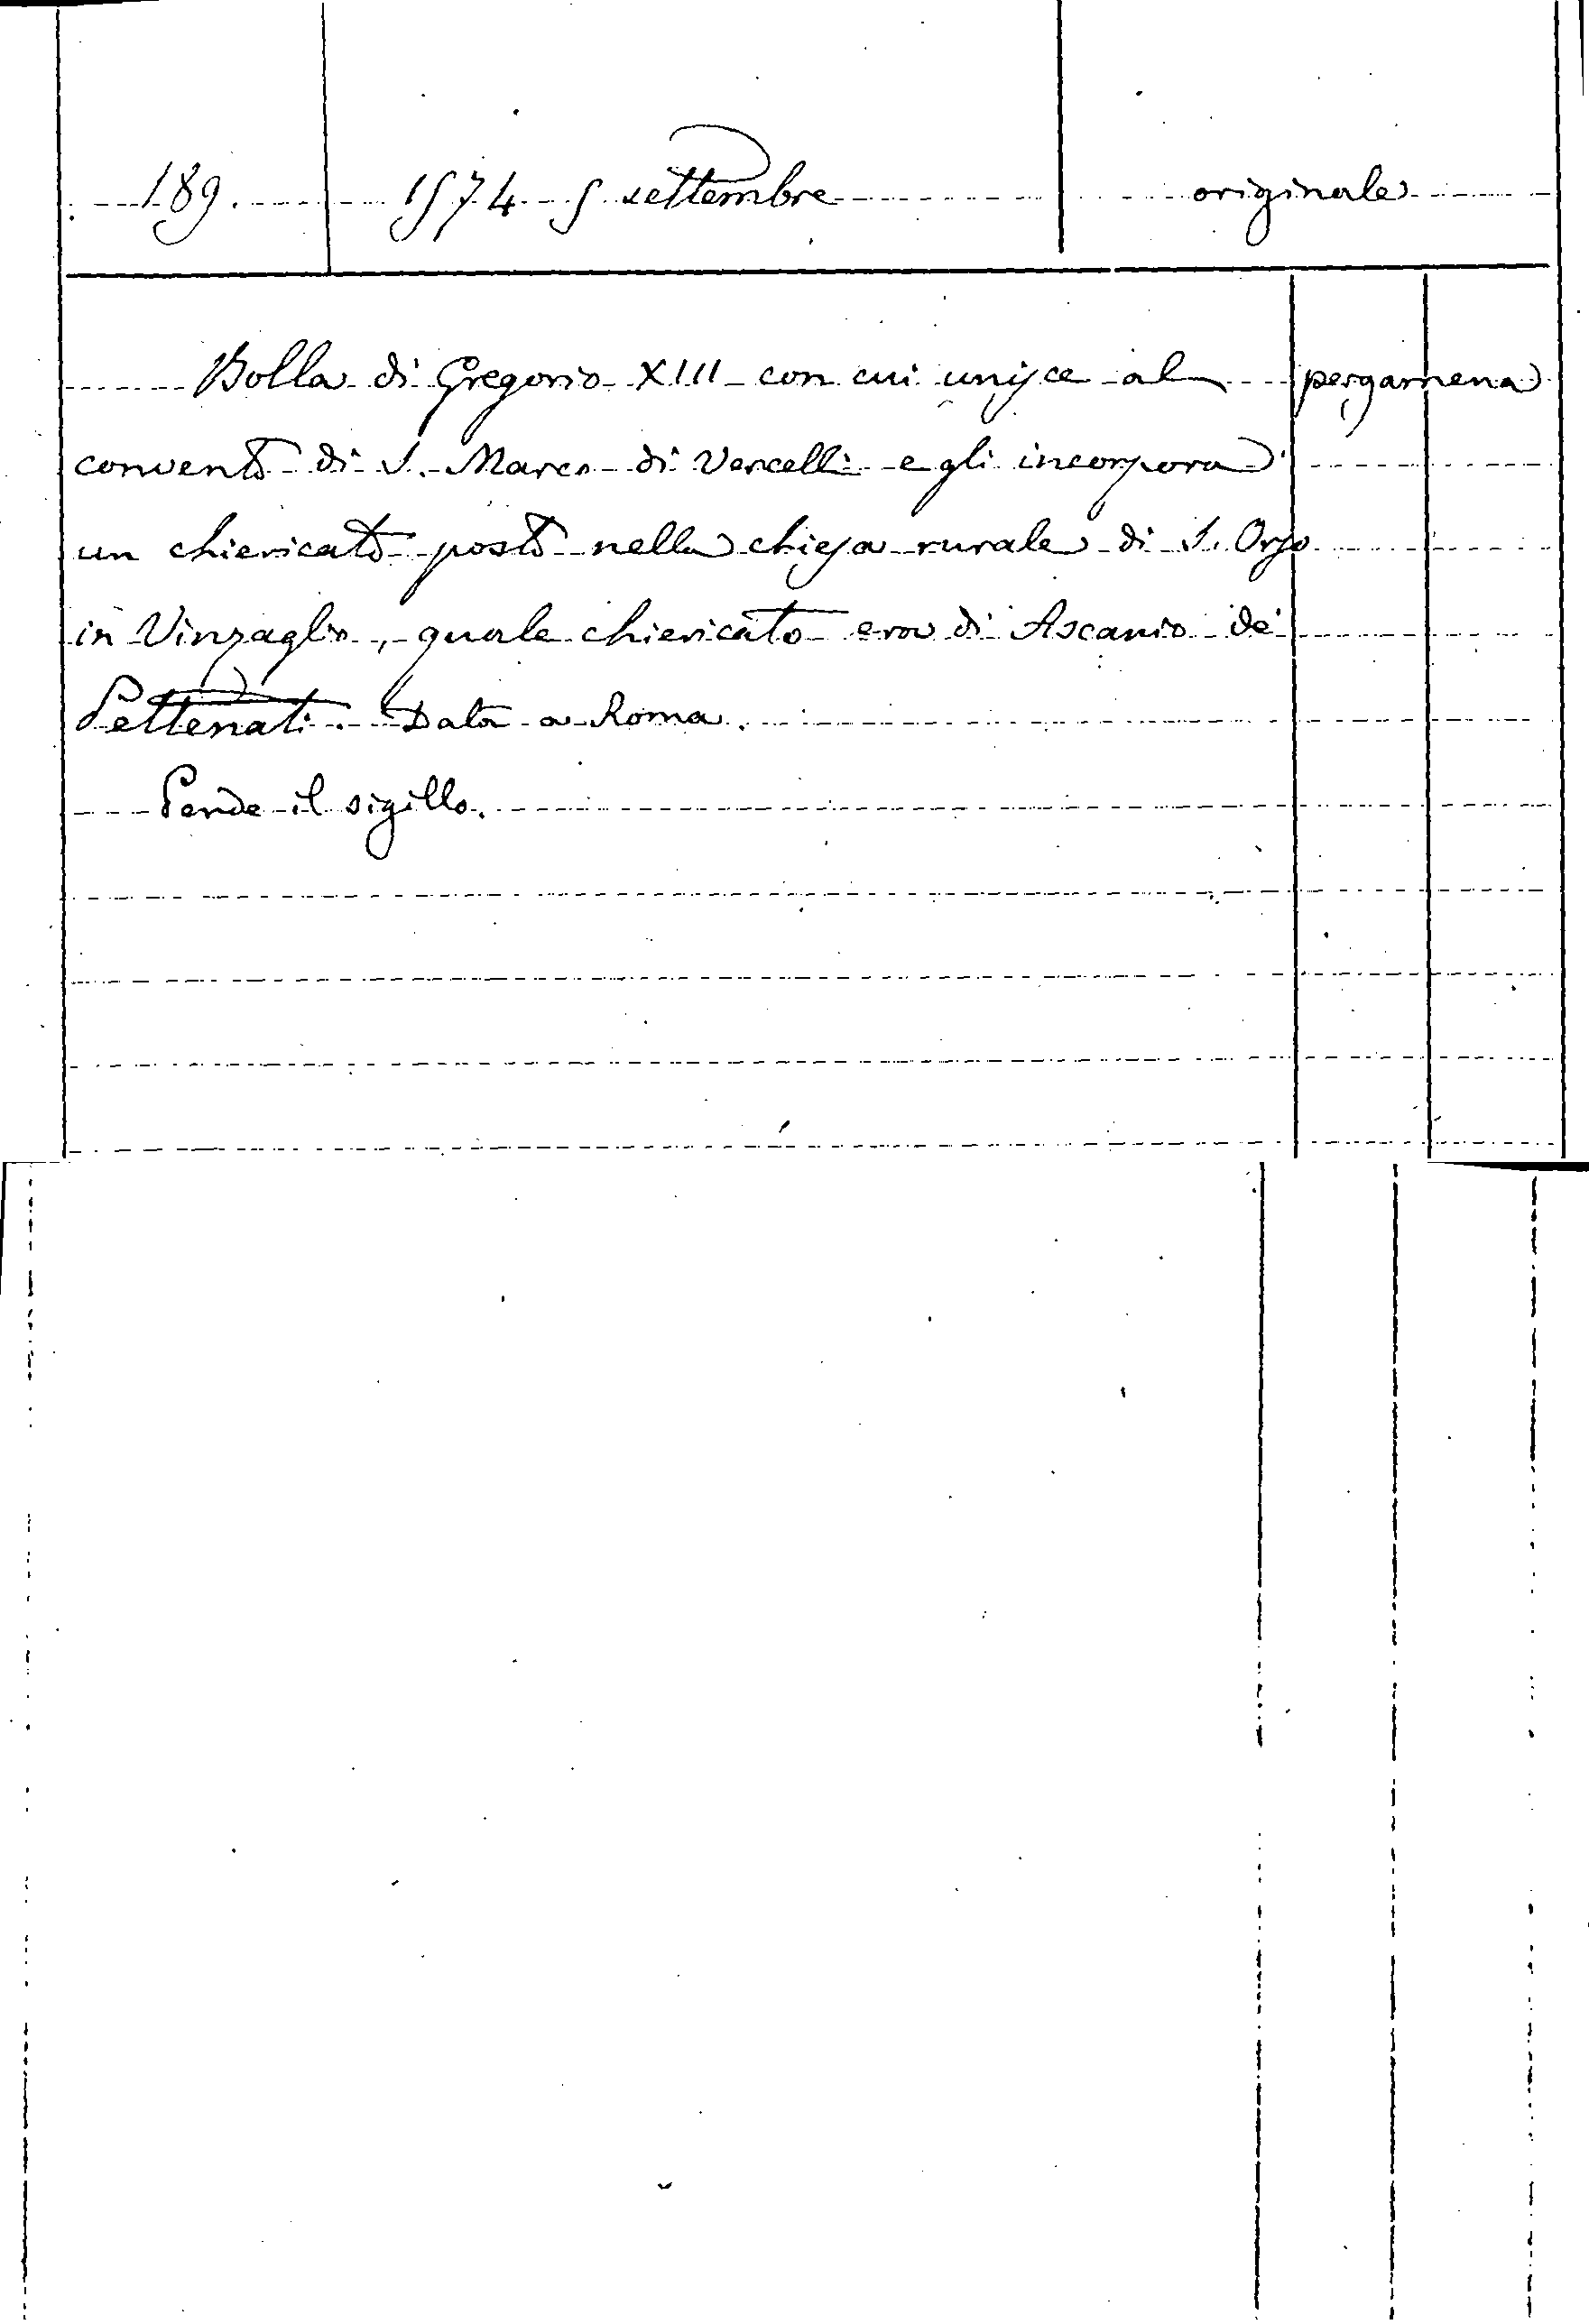 189. 1574 5 settembre originale
Bolla di Gregorio XIII con cui unisce al pergamena
convento di S. Marco di Vercelli e gli incorpora
un chiericato posto nella chiesa rurale di S. Orso
in Vinzaglio, quale chiericato era di Ascanio de'
Pettenati. Data a Roma.
Pende il sigillo.